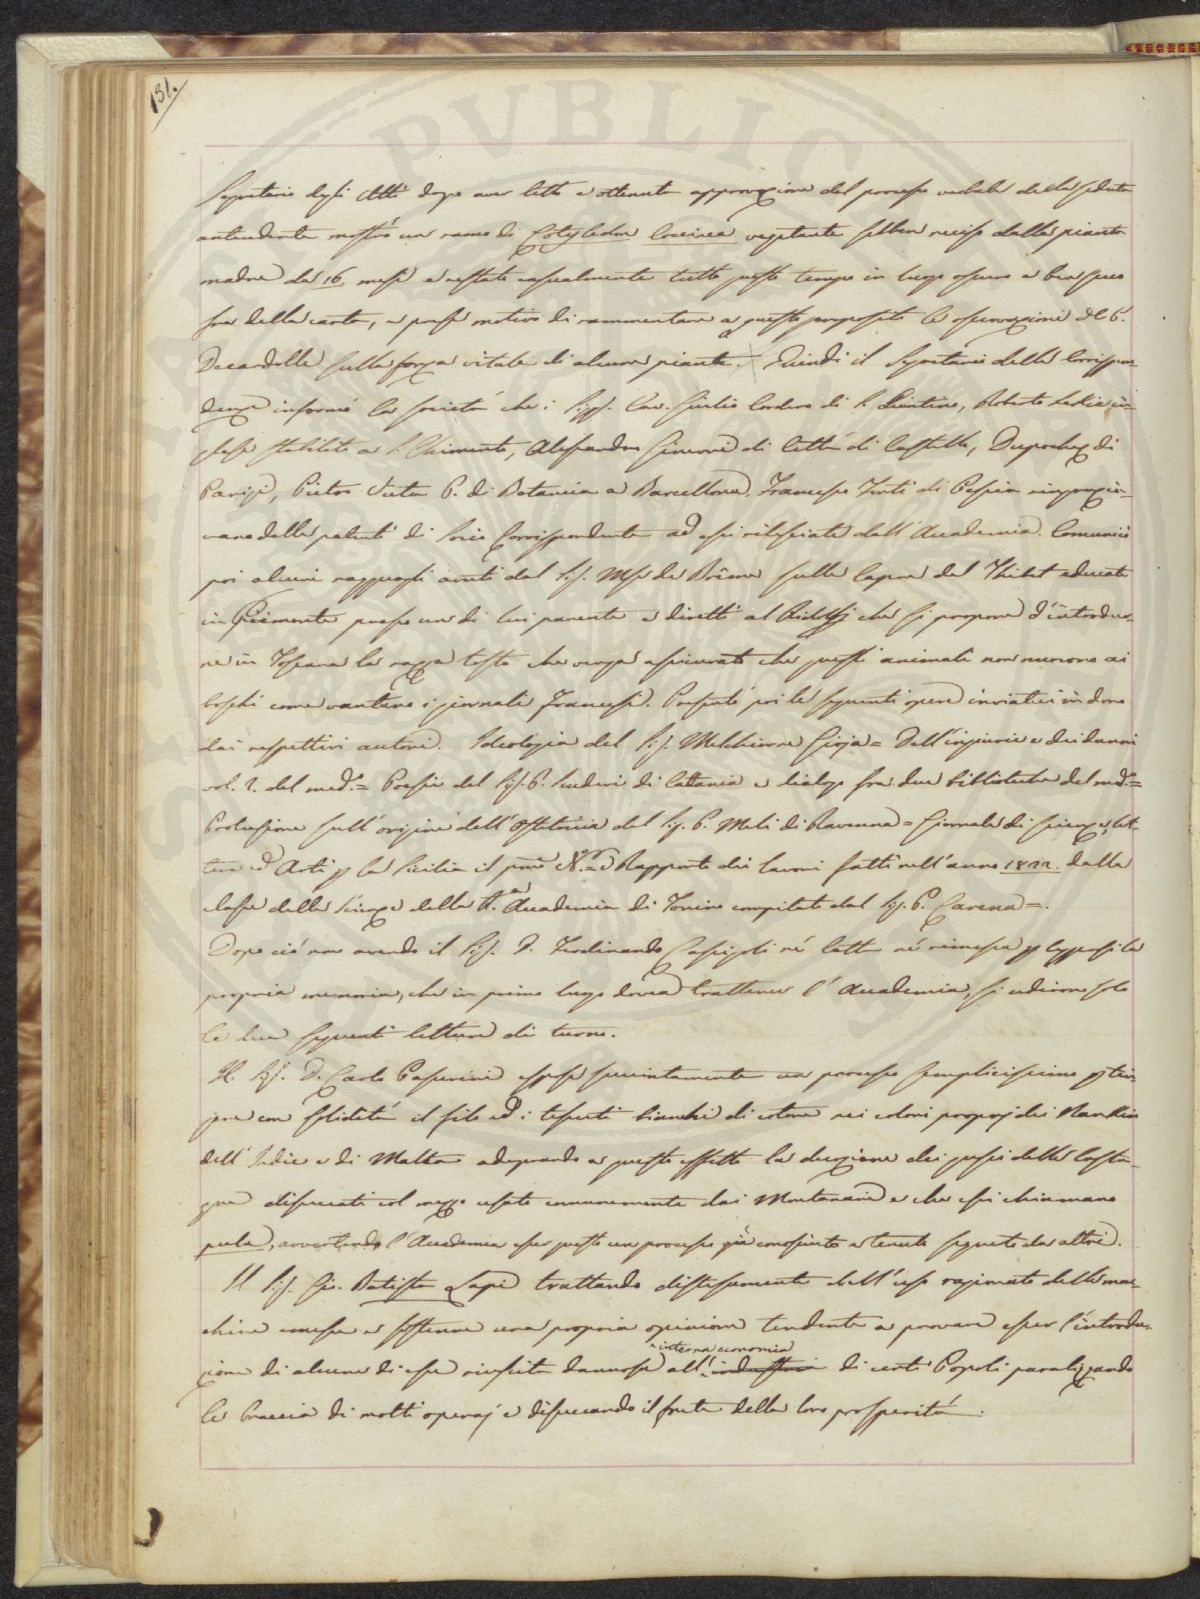 131.
Segretario degli Atti dopo aver letto e ottenuta approvazione del processo verbale della seduta
antecedente mostrò un ramo di Cotyledon Coccinea vegetante sebben reciso dalla pianta
madre da 16 mesi e restato casualmente tutto questo tempo in luogo oscuro e ben
fra della carta, e prese motivo di rammentare a questo proposito le osservazione del P.
Decandolle sulla forza vitale di alcune piante. Quindi il Segretario delle Corrispon-
denze informò la società che i Sigg. Cav. Giulio Cordero di S. Quintino, Roberto in-
glese stabilito a S. Chimento, Alessandro di Città di Castello, di
Parigi, Pietro P. di Botanica a Barcellona, Francesco di Pescia ringrazia-
vano delle patenti di Socio Corrispondente ad essi rilasciate dall'Accademia. Comunicò
poi alcuni ragguagli avuti dal Sig. Mse. de Brême sulle Capre del Thibet educate
in Piemonte presso un di lui parente e diretti al Ridolfi che si propone d'introdur-
re in Toscana la razza tosto che venga assicurato che questi animali non nuocono ai
boschi come vantano i giornali francesi. Presentò poi le seguenti opere inviateci in dono
dai respettivi autori. Ideologia del Sig. Melchiorre Gioja = Dell'ingiuria e dei danni
vol. 2. del med.º = Poesie del Sig. P. Scuderi di Cattania e dialogo fra due biblioteche del med.º =
Prolusione sull'origine dell' Ostetricia del Sig. P. Meli di Ravenna = Giornale di Scienze, Let-
tere ed Arti p la Sicilia il N.º = Rapporto dei lavori fatti nell'anno 1822. dalla
classe delle Scienze della R.ª Accademia di Torino compilato dal Sig. P. Carena =.
Dopo ciò non avendo il Sig. D. Ferdinando né letta né rimessa la
propria memoria, che in primo luogo dovea trattener l'Accademia, si udirono solo
le due seguenti letture di turno.
Il Sig. D. Carlo Passerini espose succintamente un processo semplicissimo p tin-
gere con solidità il filo ed i tessuti bianchi di cotone nei colori proprj dei Nankin
dell'Indie e di Malta adoprando a questo effetto la decozione dei gusci delle Casta-
gne disseccati col mezzo usato comunemente dai Montanari e che essi chiamano
pula, avvertendo l'Accademia esser questo un processo già conosciuto e tenuto segreto da altri.
Il Sig. Gio. Batista Lapi trattando distesamente dell'uso ragionato delle mac-
chine emesse e sostenne una propria opinione tendente a provare esser l'introdu-
interna economia
zione di alcune di esse riuscita dannosa all' industria di certi Popoli paralizzando
le braccia di molti operaj e disseccando il fonte della loro prosperità.